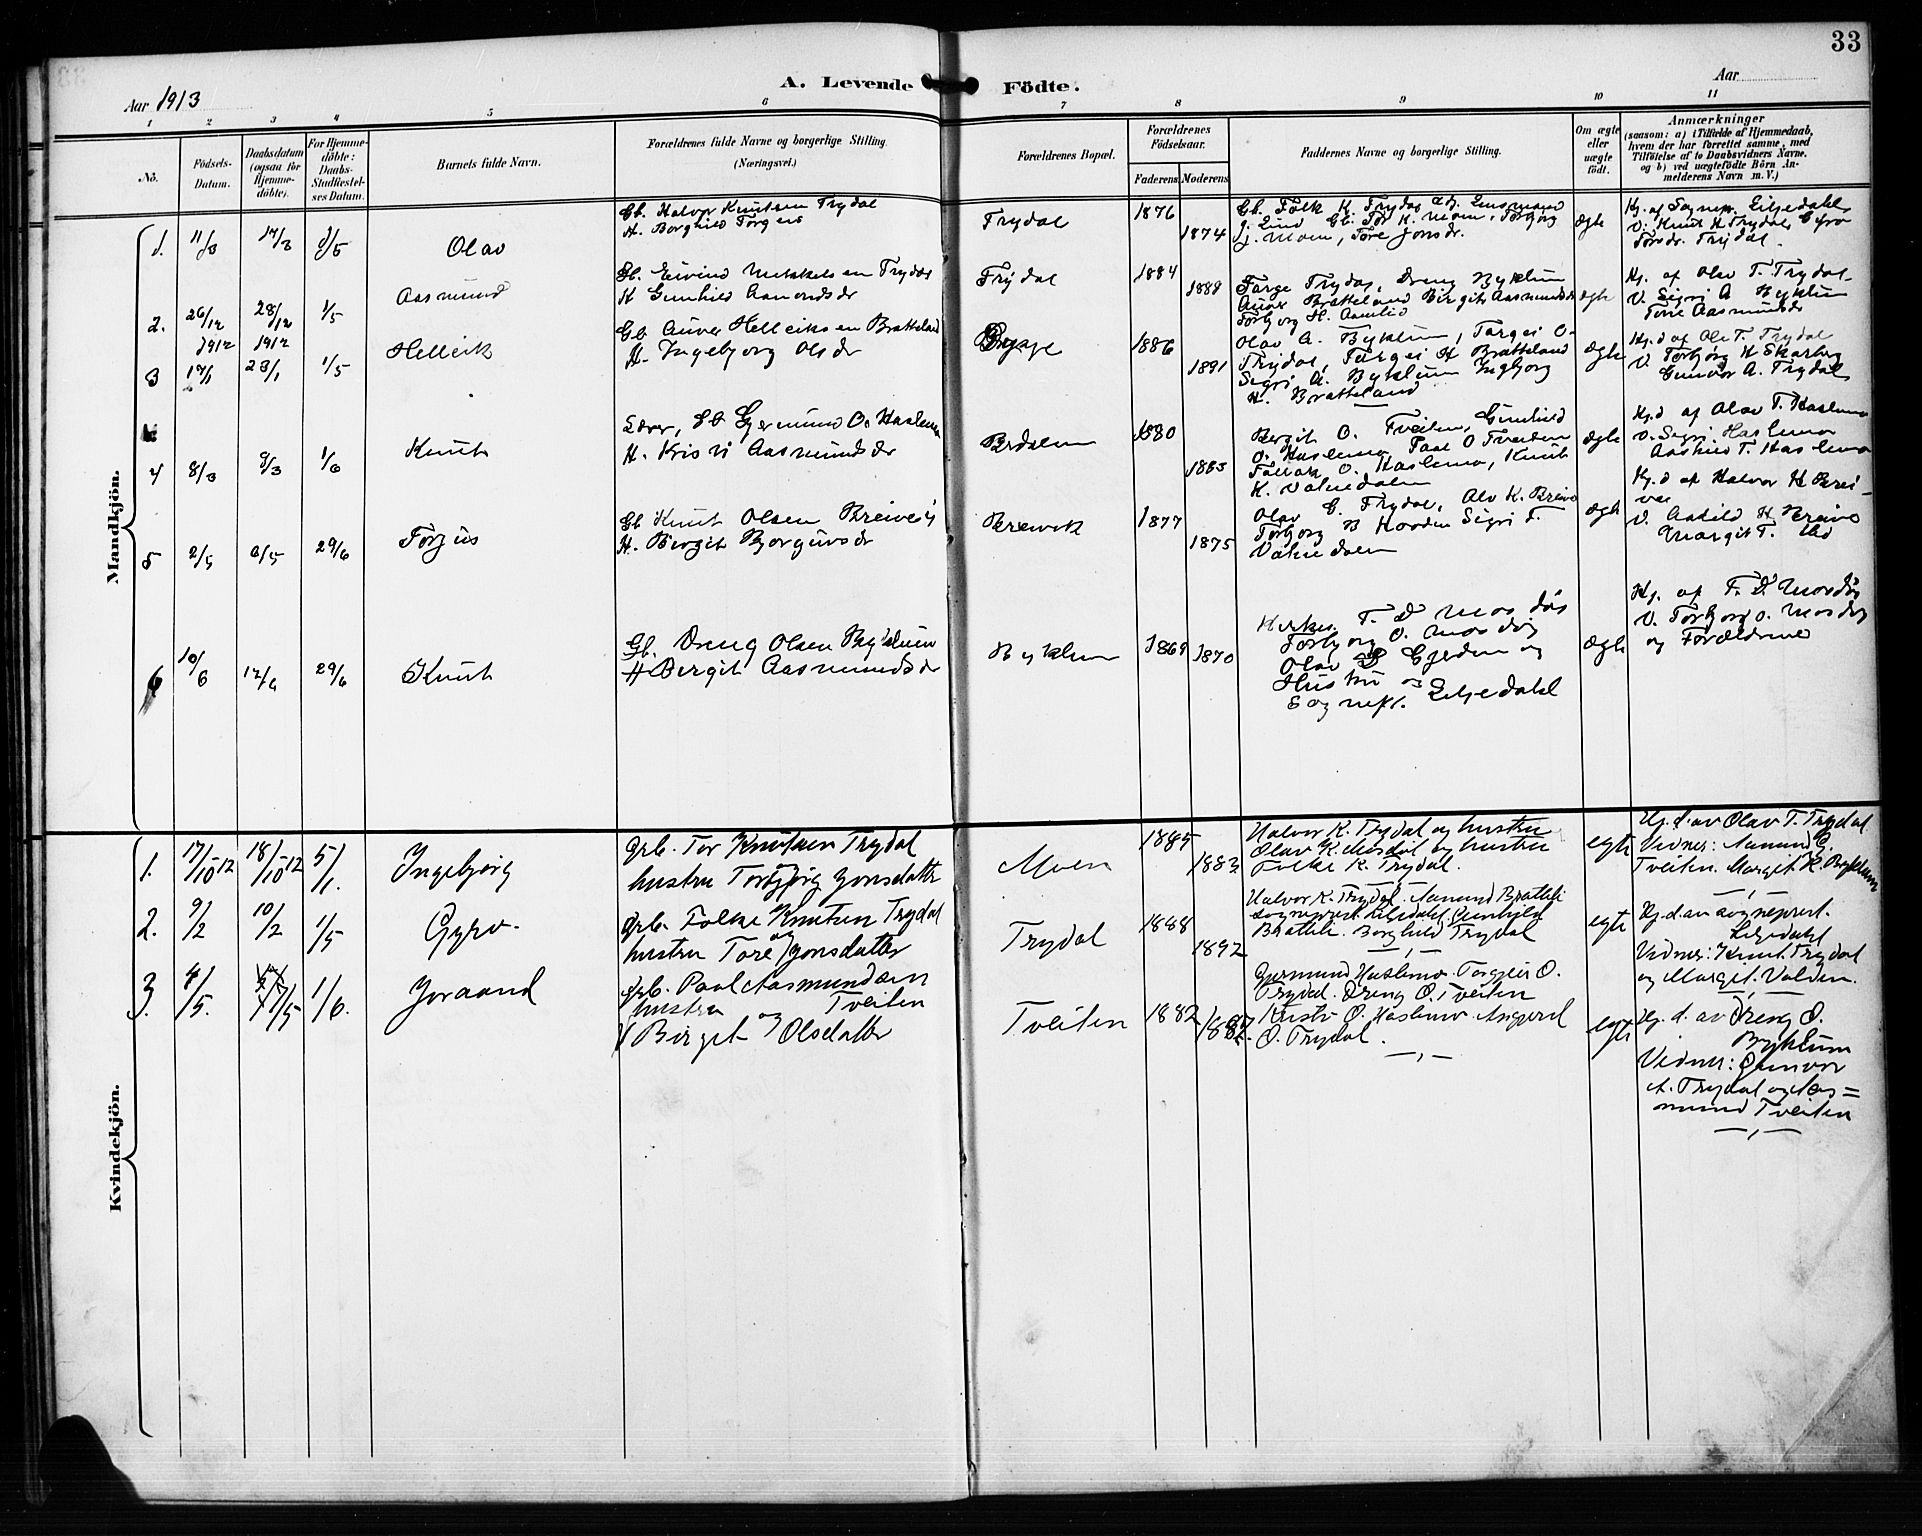 33
Aar 1913
A. Levende Födte.
Aar
1 2 3 4 5 6 7 8 9 10 11
No.
Födsels-Datum.
Daabsdatum (ogsaa for Hjemme-döbte).
For Hjemme-döbte: Daabs-Stadfæstel-ses Datum.
Barnets fulde Navn.
Forældrenes fulde Navne og borgerlige Stilling. (Næringsvei.)
Forældrenes Bopæl.
Forældrenes Födselsaar.
Faderens
Moderens
Faddernes Navne og borgerlige Stilling.
Om ægte eller uægte födt.
Anmærkninger (saasom: a) i Tilfælde af Hjemmedaab, hvem der har forrettet samme, med Tilföielse af to Daabsvidners Navne, og b) ved uægtefödte Börn An-melderens Navn m. V.)
Mandkjön.
1. 11/3 17/3 1/5
Olav
Gb. Halvor Knutsen Trydal
H. Borghild Torgeis
Trydal
1876
1874
Gb. Folk K Trydal
Gb. Tor K. Moen, Torbjørg
J. Moen, Tore Jonsdr.
ægte
Hj. af Sognepr. Liljedahl
V. Knut H Trydal, Gyro
Torsdr. Trydal.
2. 26/12 1912 28/12 1912 1/5
Aasmund
Gb. Eivind Mikkelsen Trydal
H Gunhild Aamondsdr
Trydal
1884
1889
Targe Trydal, Dreng Byklum
Auver Bratteland Birgit Aasmundsdr
Torbjorg H.
ægte
Hj. af Olav T. Trydal
V. Sigri A Byklum
Tore Aasmundsdr
3 17/1 23/1 1/5
Helleik
Gb. Auver Helleiksen Bratteland
H. Ingebjorg Olsdr
1886
1891
Olav A. Byklum, Targei O.
Trydal, Targei H Bratteland
Sigri A. Byklum Ingbjorg
H. Bratteland
ægte
Hj.d af Ole T. Trydal
V. Torbjorg K Skarberg
Gunvor A. Trydal
4 8/3 9/3 1/6
Knut
Lærer, Gb Gjermund O. Haslemo
H. Kristi Aasmundsdr
1880
1883
Bergit O. Tveiten, Gunhild
O. Haslemo, Paal O Tveiten
O. Haslemo, Knut
K. Valnedalen
ægte
Hj.d af Olav T. Haslemo
V. Sigri Haslemo
Aashild T. Haslemo
5 2/5 6/5 29/6
Torjus
Gb Knut Olsen Breivevig
H. Birgit Bjorgivsdr
Breivik
1877
1875
Olav G. Trydal, Alv K. Breive
Torbjorg B Hovden Sigri T.
Valnedalen
ægte
Hj.d af Halvor H Brei-
ve
V. Aashild H Breive
Margit T.
6 10/6 12/6 29/6
Knut
Gb. Dreng Olsen Byklum
H Bergit Aasmundsdr
Byklum
1869
1870
T. D Mosdøl
Torbjorg O. Mosdøl
Olav D Gjerden og
Hustru og
Sognepr. Liljedahl
ægte
Hj. af T. D. Mosdøl
V. Torbjorg O. Mosdøl
og Forældrene
Kvindekjön.
1. 17/10 12 18/10 12 5/1.
Ingebjørg
Grb. Tor Knutsen Trydal
hustru Torbjørg Jonsdatter
Moen
1885
1882
Halvor K. Trydal og hustru
Olav K. Mosdøl og hustru
Folke K. Trydal.
egte
Hj. d. av Olav T. Trydal
Vidner: Aamund G.
Tveiten. Margit K. Byklum
2. 9/2 10/2 1/5
Gyro.
Grb. Folke Knutsen Trydal
og
hustru Tore Jonsdatter
Trydal
1888
1892
Halvor K. Trydal. Aamund Bratteli
sogneprest Liljedahl. Gunhild
Bratteli. Borghild Trydal
egte
Hj. d. av sogneprest.
Liljedahl
Vidner: Knut Trydal
og Margit Valden.
3. 4/5. 17/5 1/6.
Joraand
Grb. Paal Aasmundsen
hustru Tveiten
Birget og Olsdatter
Tveiten
1882
1882.
Gjermund Haslemo. Torgeir O.
Trydal. Dreng O. Tveiten
Kristi O. Haslemo. Asgjerd
O. Trydal.
egte
Hj. d. av Dreng O.
Byklum
Vidner: Gunvor
A. Trydal og Aas=
mund Tveiten